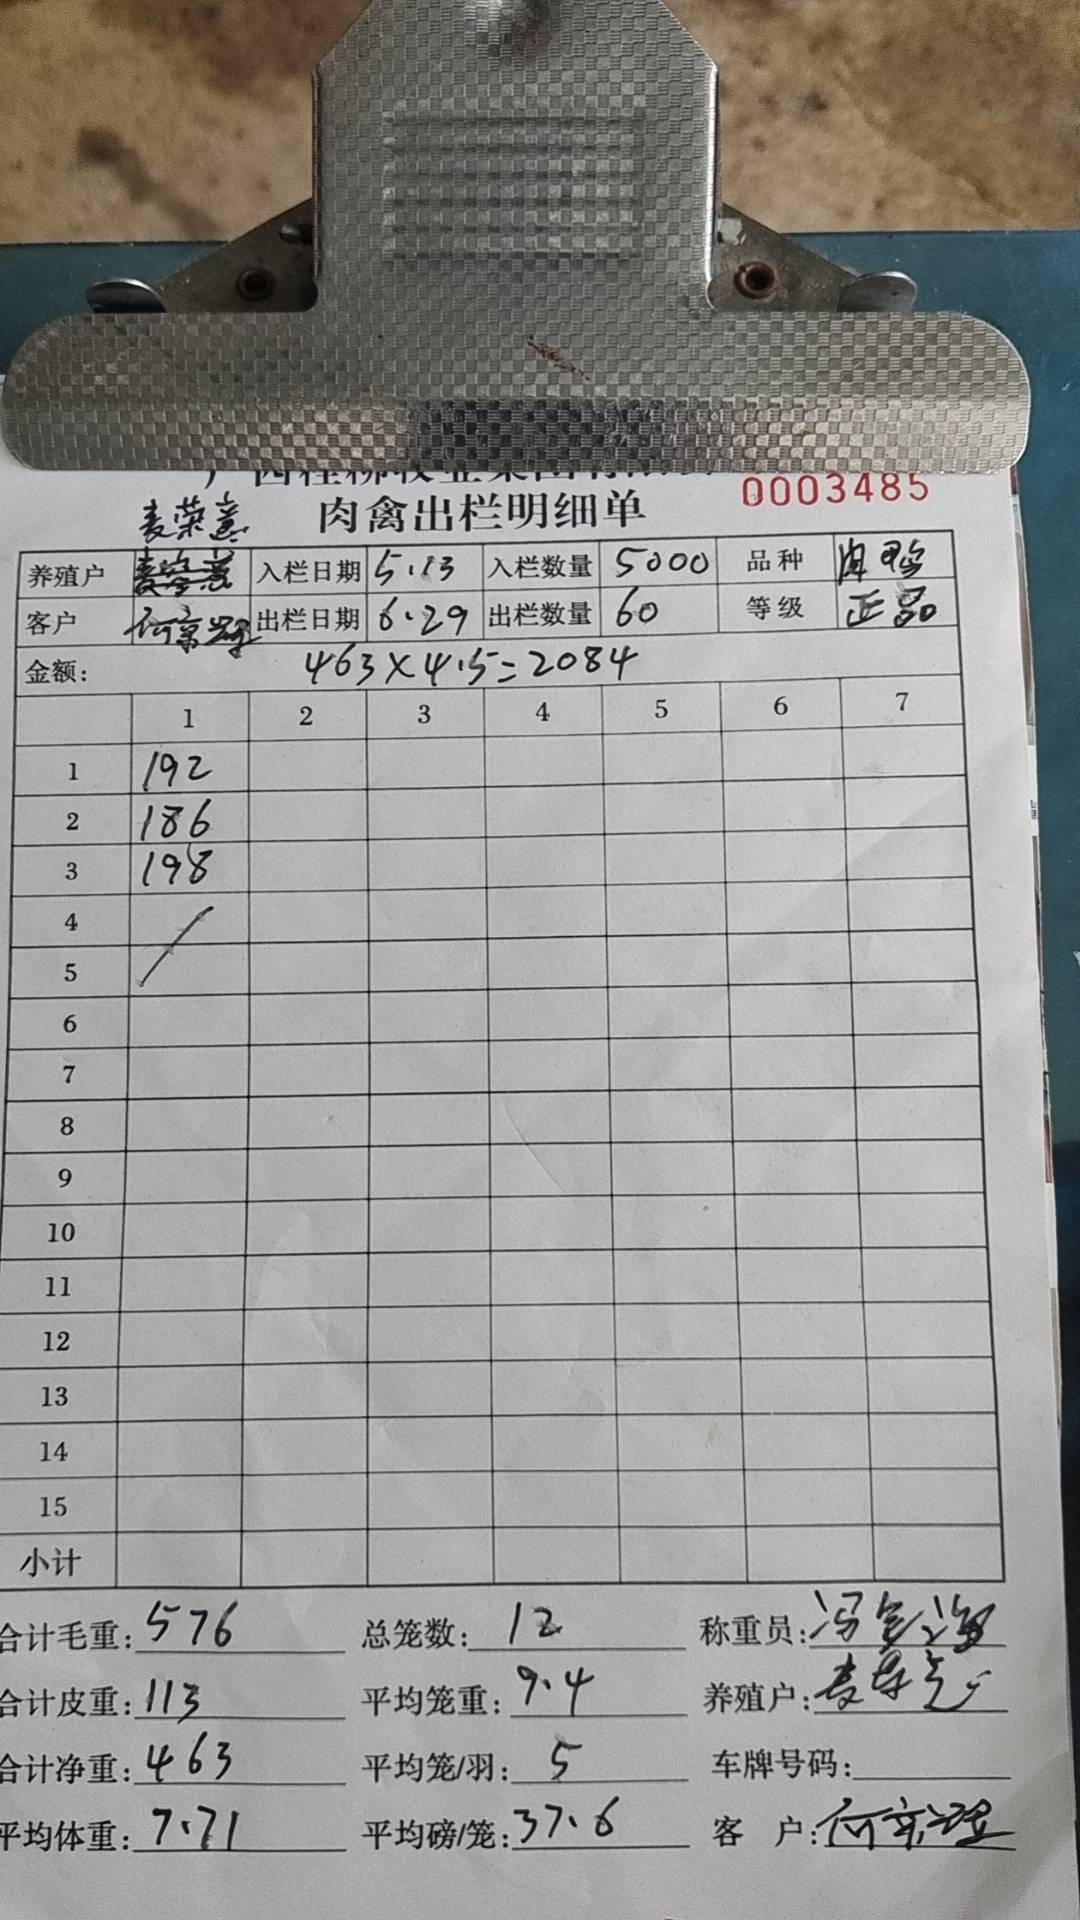 0003485
肉禽出栏明细单
麦荣意
养殖户 入栏日期 5.13 入栏数量 5000 品种 肉鸭
客户 出栏日期 6.29 出栏数量 60 等级 正品
金额: 463×4.5=2084
1 2 3 4 5 6 7
1 192
2 186
3 198
4
5
6
7
8
9
10
11
12
13
14
15
小计
合计毛重: 576 总笼数: 12 称重员:
合计皮重: 113 平均笼重: 9.4 养殖户:
合计净重: 463 平均笼/羽: 5 车牌号码:
平均体重: 7.71 平均磅/笼: 37.6 客 户: